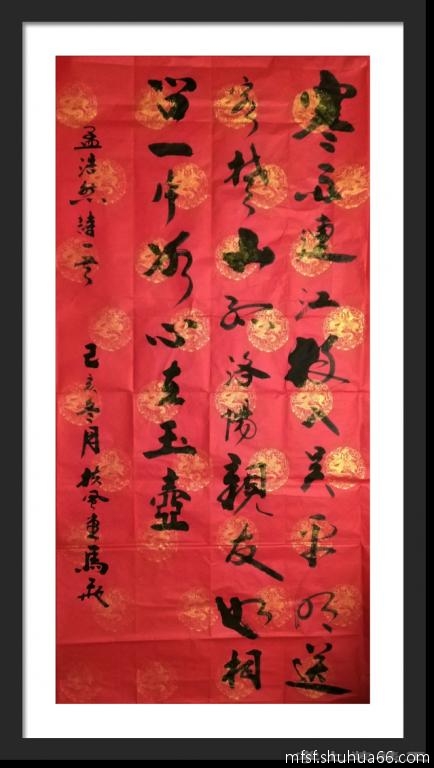 寒雨連江夜入吳平明送
客楚山孤洛陽親友如相
問一片冰心在玉壺
孟浩然詩一首
己亥冬月扶風
mfsf.shuhua66.com